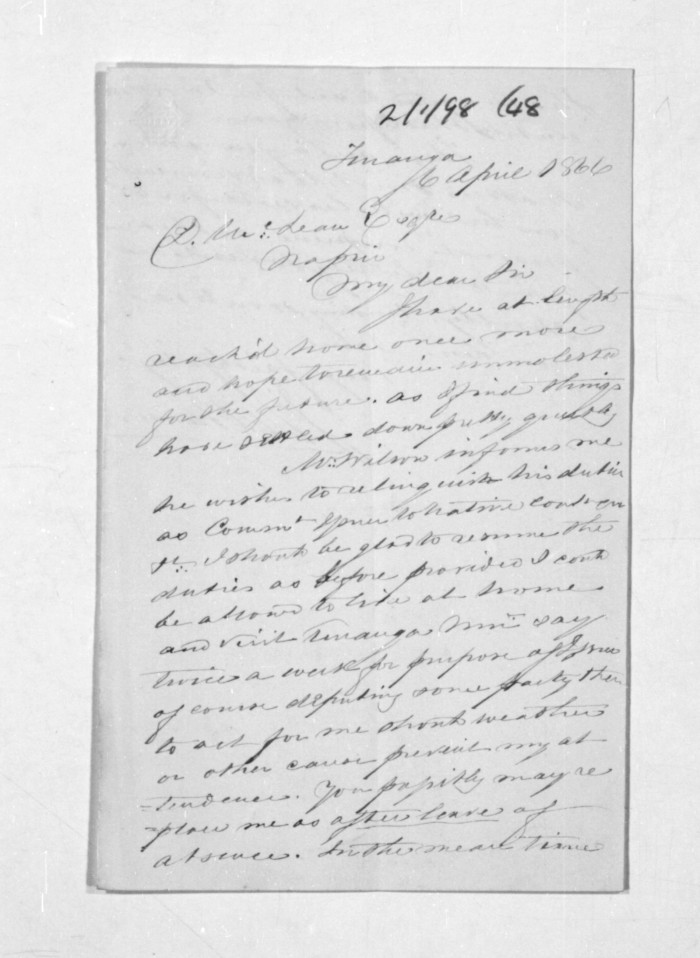 2/1/98 (48
Turanga
6 April 1866
D. McLean Esqre
Napier
My dear Sir
I have at length
reach'd home once more
and hope to remain unmolested
for the future. as I find things
have settled down pretty quietly
Mr. Wilson informs me
he wishes to relinquish his duties
as Commt Issuer to Native
&c. I should be glad to resume the
duties as before provided I could
be allowed to live at home
and visit Turanga say
twice a week for purpose of Issue
of course deputing some party there
to act for me should weather
or other cause prevent my at
=tendence. You possibly may re
=place me as after leave of
absence. In the mean time